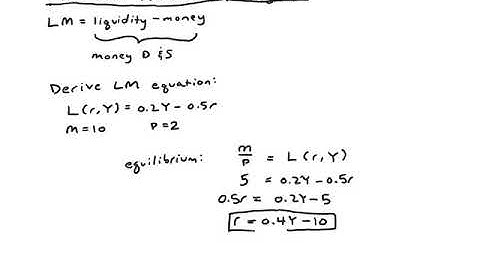 LM = liquidity-money
money D & S
Derive LM equation:
L(r,Y) = 0.2Y - 0.5r
M=10 P=2
equilibrium: M/P = L(r,Y)
5 = 0.2Y - 0.5r
0.5r = 0.2Y - 5
r = 0.4Y - 10